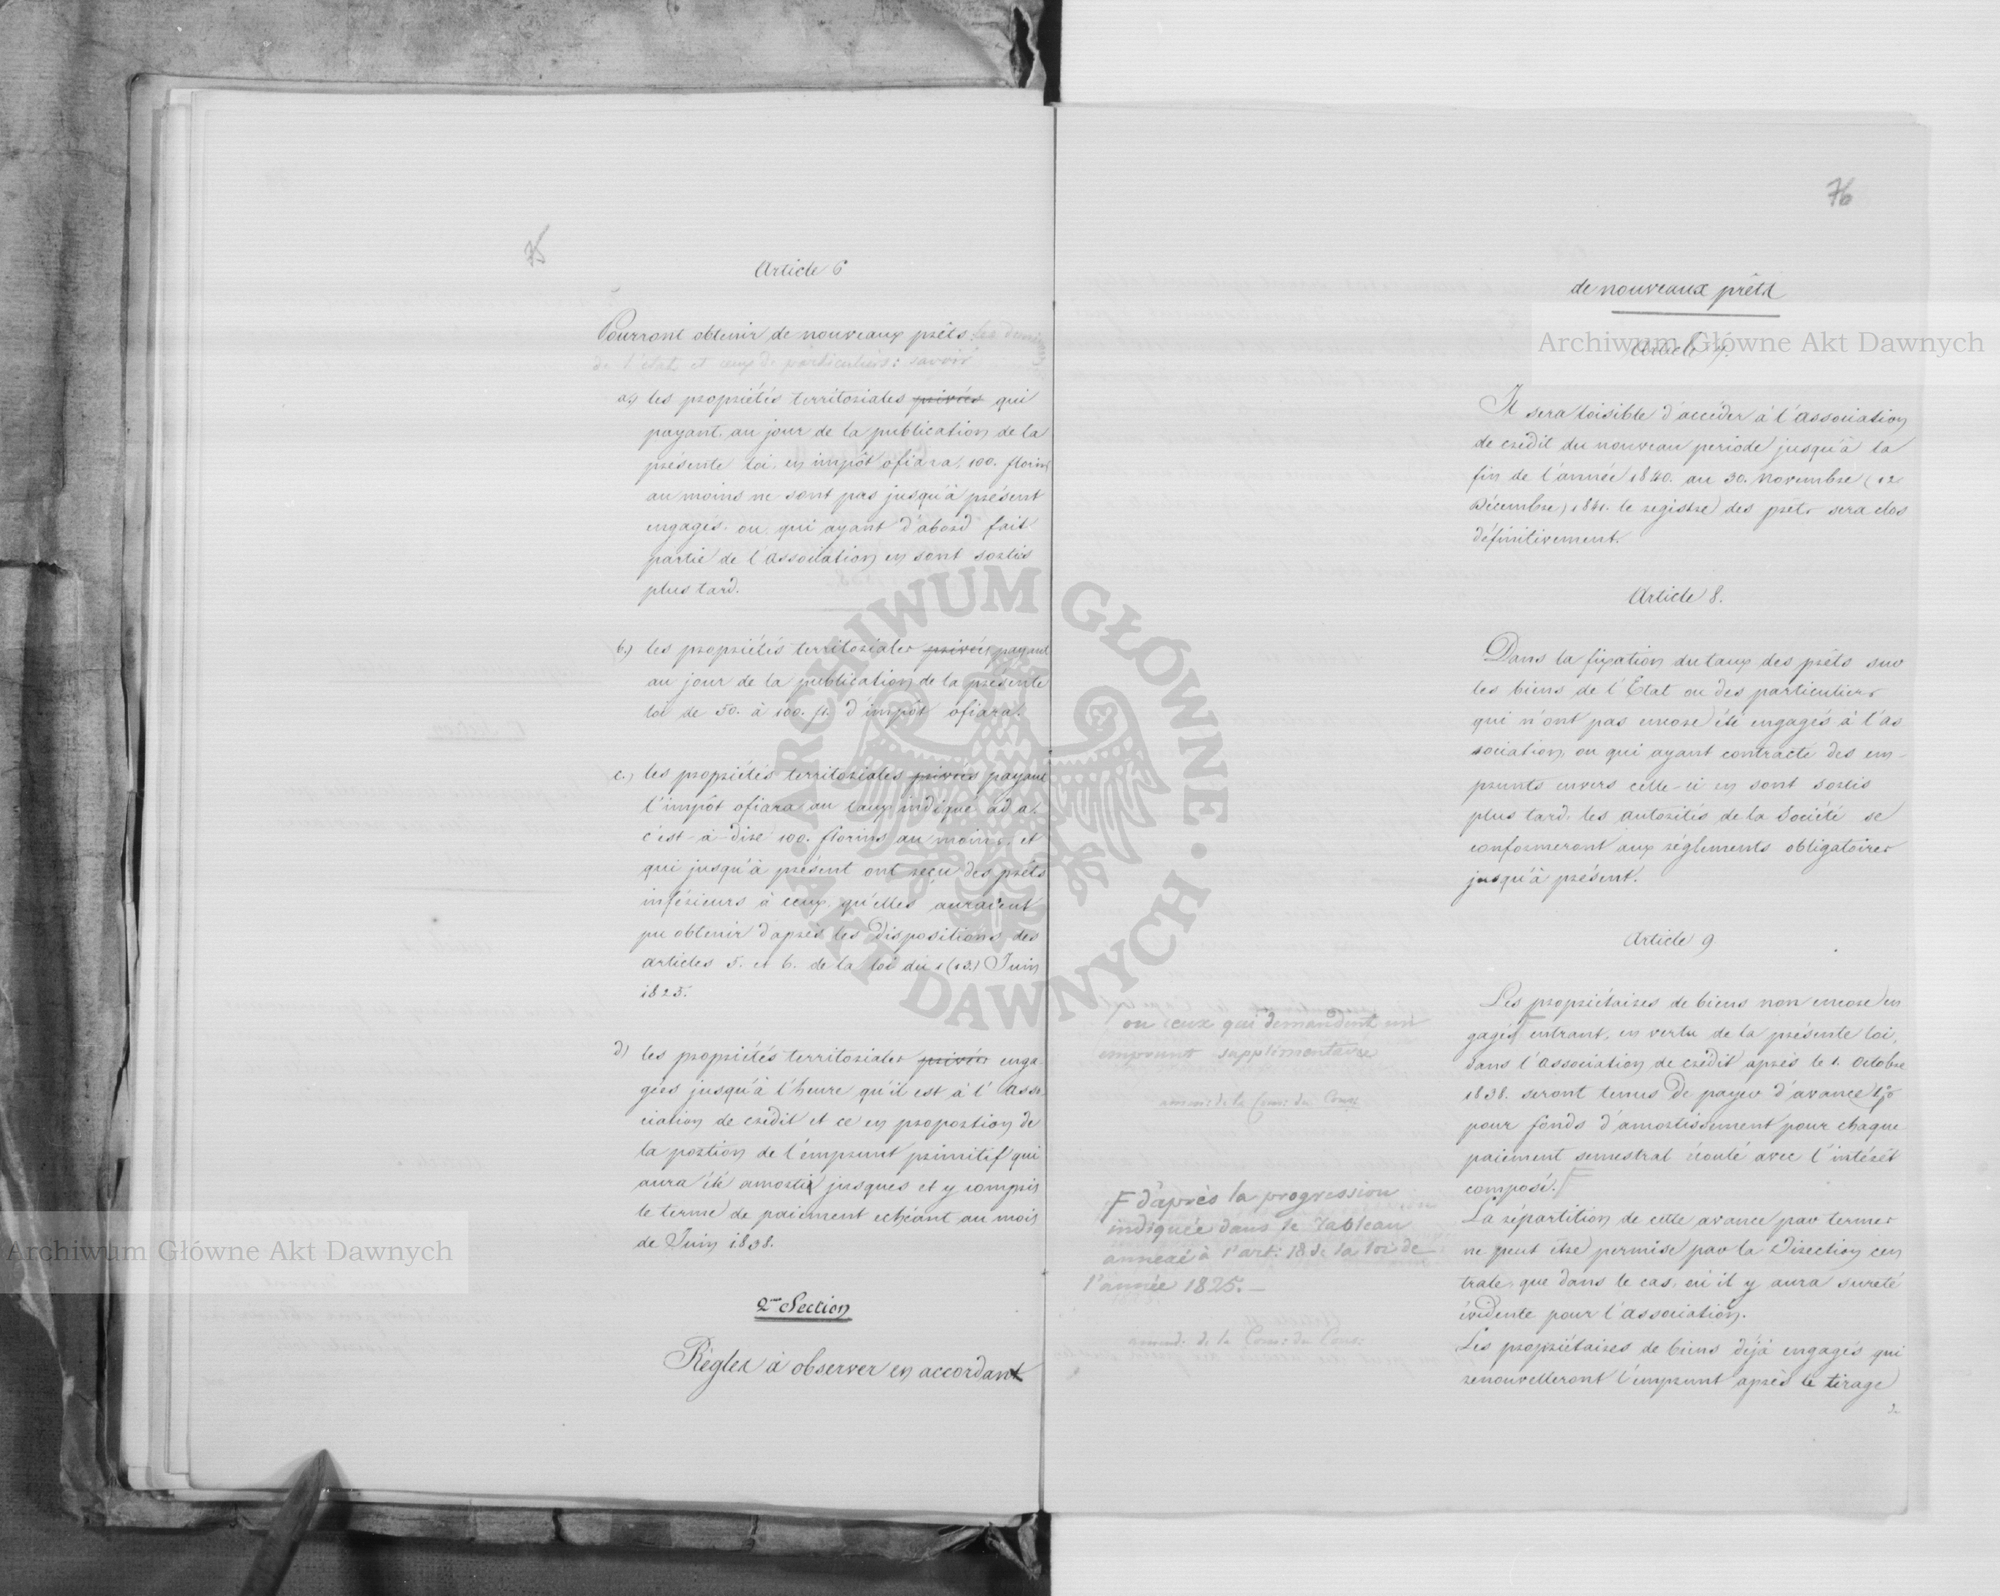 75
Article 6
Pourront obtenir de nouveaux prêts: les domaines
de l'état et ceux de particuliers: savoir
a) les propriétés territoriales privées qui
payant au jour de la publication de la
présente loi, en impôt ofiara, 100. florins
au moins ne sont pas jusqu'à présent
engagés ou qui ayant d'abord fait
partie de l'association en sont sortis
plus tard.
b.) les propriétés territoriales privées payant
au jour de la publication de la présente
loi de 50. à 100. fl. d'impôt ofiara.
c.) les propriétés territoriales privées payant
l'impôt ofiara au taux indiqué ad a.
c'est-à-dire 100. florins au moins, et
qui jusqu'à présent ont reçu des prêts
inférieurs à ceux, qu'elles auraient
pu obtenir d'après les dispositions des
articles 5. et 6. de la loi du 1 (13.) Juin
1825.
d) les propriétés territoriales privées enga-
gées jusqu'à l'heure qu'il est à l'Asso-
ciation de crédit et ce en proportion de
la portion de l'emprunt primitif qui
aura été amortie jusques et y compris
le terme de paiement echéant au mois
de Juin 1838.
2me Section
Règles à observer en accordant
76
de nouveaux prêts
Article 7.
Il sera loisible d'accéder à l'association
de crédit du nouveau periode jusqu'à la
fin de l'année 1840. au 30. Novembre (12
Décembre) 1841. le registre des prêts sera clos
définitivement.
Article 8.
Dans la fixation du taux des prêts sur
les biens de l'Etat ou des particuliers
qui n'ont pas encore été engagés à l'as
sociation, ou qui ayant contracté des em-
prunts envers celle-ci en sont sortis
plus tard, les autorités de la Société se
conformeront aux réglements obligatoires
jusqu'à présent.
Article 9
Les propriétaires de biens non encore en
gagés F entrant, en vertu de la présente loi,
dans l'association de crédit après le 1. Octobre
1838. seront tenus de payer d'avance 1%
pour fonds d'amortissement pour chaque
paiement semestral écoulé avec l'intérêt
composé. F
La répartition de cette avance par termes
ne peut être permise par la Direction cen
trale, que dans le cas, où il y aura sureté
évidente pour l'association.
Les propriétaires de biens déjà engagés qui
renouvelleront l'emprunt après le tirage
ou ceux qui demandent un
emprunt supplémentaire
amend: de la Com: du Cons:
F d'après la progression
indiquée dans le Tableau
annexé à l'art: 18 de la loi de
l'année 1825.—
amend. de la Com: du Cons:
Archiwum Główne Akt Dawnych
Archiwum Główne Akt Dawnych
ARCHIWUM GŁÓWNE
AKT DAWNYCH